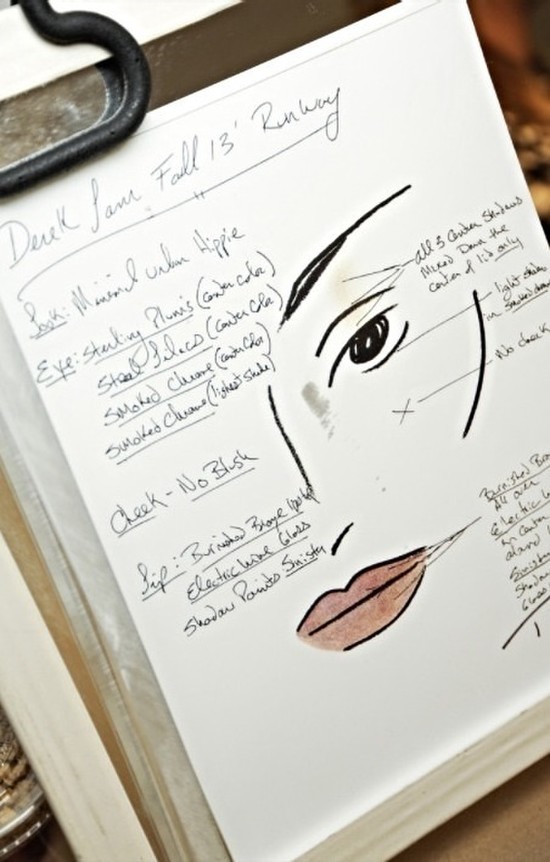 Derek Lam Fall 13' Runway
Look: Minimal urban Hippie
Eye: Sterling Plums (center color)
Steel Lilacs (center color)
Smoked Chrome (center color)
Smoked Chrome (lightest shade)
Cheek - No Blush
Lip: Burnished Bronze
Electric Wine Gloss
Shadow Paints
all 3 center shadows
Mixed Down the
center of lid only
light
in smoked
No cheek
Burnished Bro
All over
Electric
in center
Shadow
Gloss